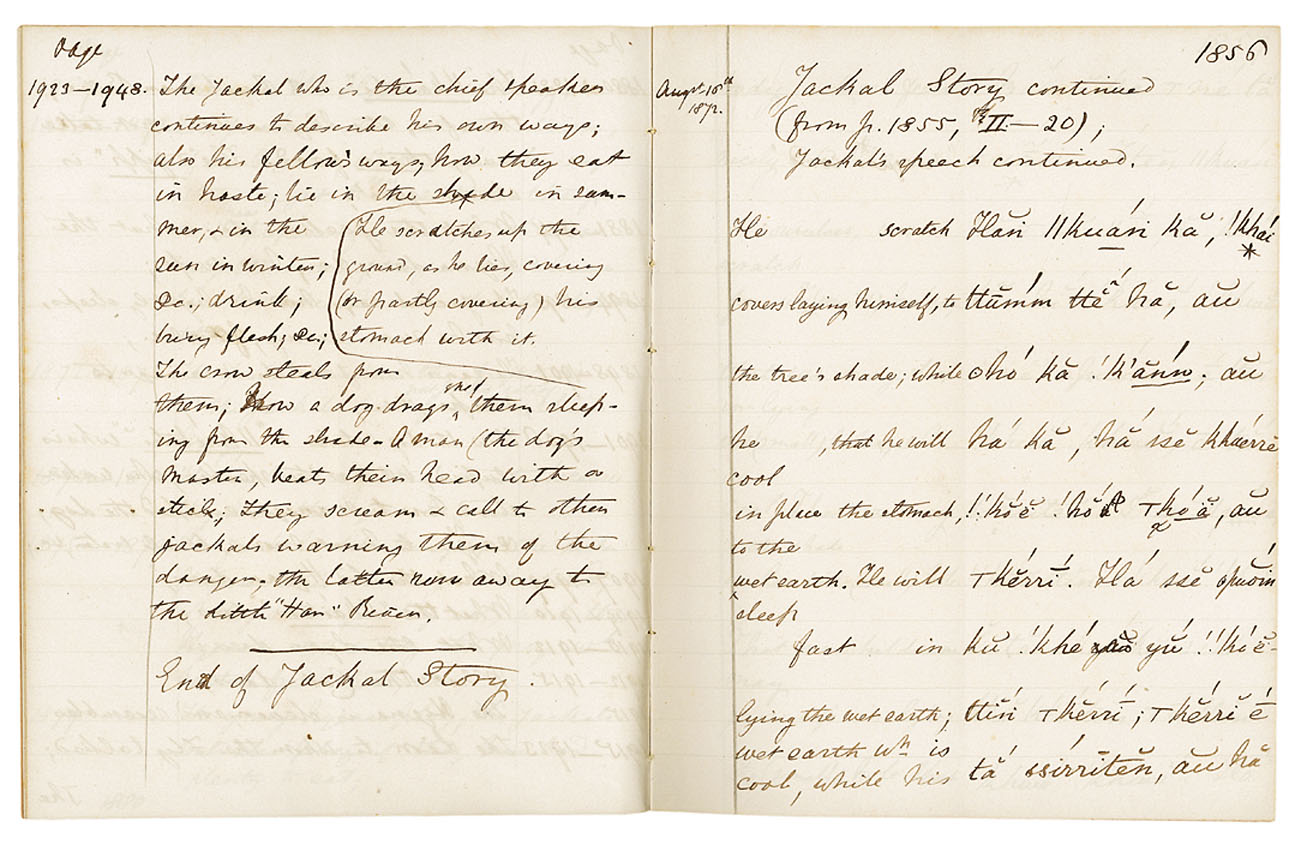 Page
1923—1948. The Jackal who is the chief speaker
continues to describe his own ways;
also his fellow's ways, how they eat
in haste; lie in the shade in sum-
mer, & in the
sun in winter;
&c.; drink;
bury flesh; &c.;
(He scratches up the
ground, as he lies, covering
(or partly covering) his
stomach with it.
The crow steals from
them; How a dog drags one of them sleep-
ing from the shade. A man (the dog's
master, beats their head with a
stick; they scream & call to other
jackals warning them of the
danger. the latter run away to
the little "Har" River.
End of Jackal Story.
1856
Augst 18th
1872.
Jackal Story continued
(from p. 1855, II.—20);
Jackal's speech continued.
He scratch Hăń ǁkuáṅ kă, !kháí
*
covers laying himself, to ttúmm ttĕⁿ hă, aŭ
the tree's shade; while ʘhó kă !k'ănń; aŭ
he , that he will há kă, hă ssĕ khaérrĕ
cool
in place the stomach, !kóĕ !hóă Tkóă, aŭ
to the
wet earth. He will Tkĕrrĭ. Há ssĕ ʘpuóin
sleep
fast in kŭ !khé yŭ !kóĕ-
lying the wet earth; ttĕń Tkĕrrĭ; Tkĕrrĭ é
wet earth wh is
cool, while his tắ ssírrĭtĕn, aŭ hă